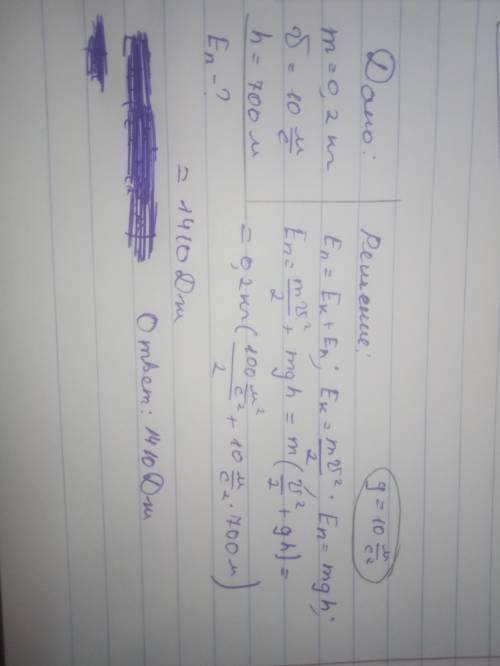 Дано:
m = 0,2 кг
v = 10 м/с
h = 700 м
Eп - ?
Решение:
g = 10 м/с²
Eп = Eк + Eп; Eк = mv²/2; Eп = mgh;
Eп = mv²/2 + mgh = m(v²/2 + gh) =
= 0,2 кг(100 м²/с²/2 + 10 м/с² · 700 м)
= 1410 Дж
Ответ: 1410 Дж